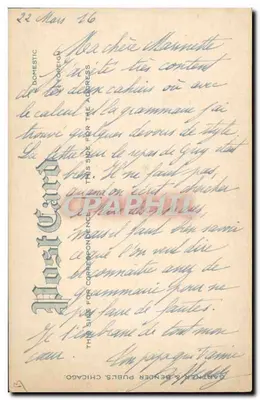 22 Mars 16
Ma chère Marinette
J'ai été très content
de tes deux cahiers où avec
le calcul et la grammaire j'ai
trouvé quelques devoirs de style
La lettre sur le repas de Guy était
bien. Il ne faut pas,
quand on écrit chercher
mais il faut bien savoir
ce que l'on veut dire
et connaître assez de
grammaire pour ne
pas faire de fautes.
Je t'embrasse de tout mon
cœur.
Un papa qui t'aime
Post Card
DOMESTIC
FOREIGN
THIS SIDE FOR CORRESPONDENCE
THIS SIDE FOR THE ADDRESS
BENDER PUBL'S. CHICAGO